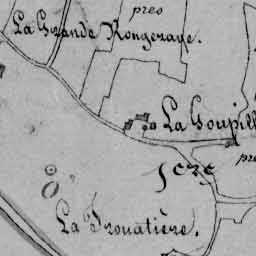 pres
La Grande Rongeraye.
La Goupill
pre
La Trouatière.